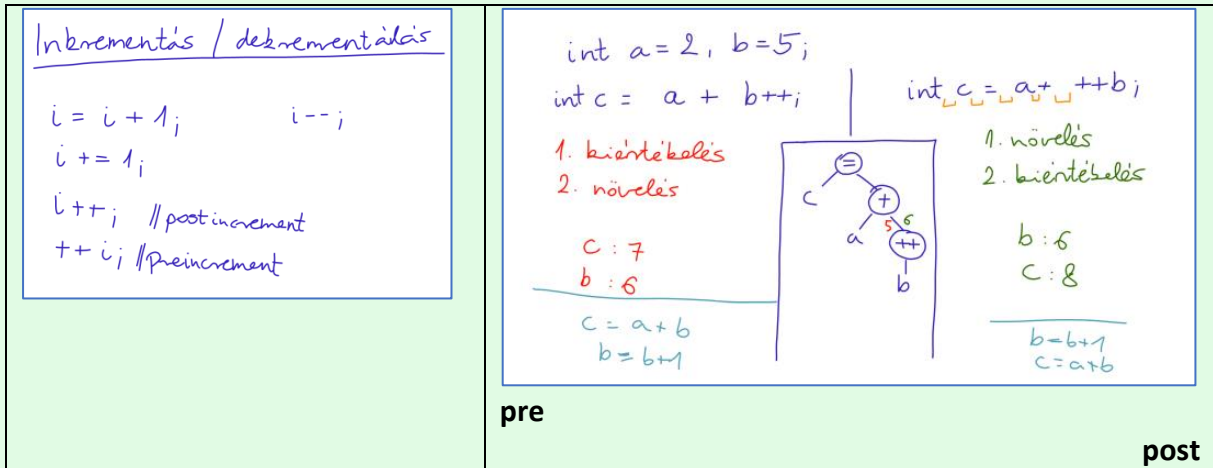 Inkrementás / dekrementálás
i = i + 1;
i--;
i += 1;
i++; //postincrement
++i; //preincrement
int a = 2, b = 5;
int c = a + b++;
1. kiértékelés
2. növelés
c : 7
b : 6
c = a + b
b = b+1
=
c
+
a
5
6
++
b
int c = a + ++b;
1. növelés
2. kiértékelés
b : 6
c : 8
b = b+1
c = a+b
pre
post